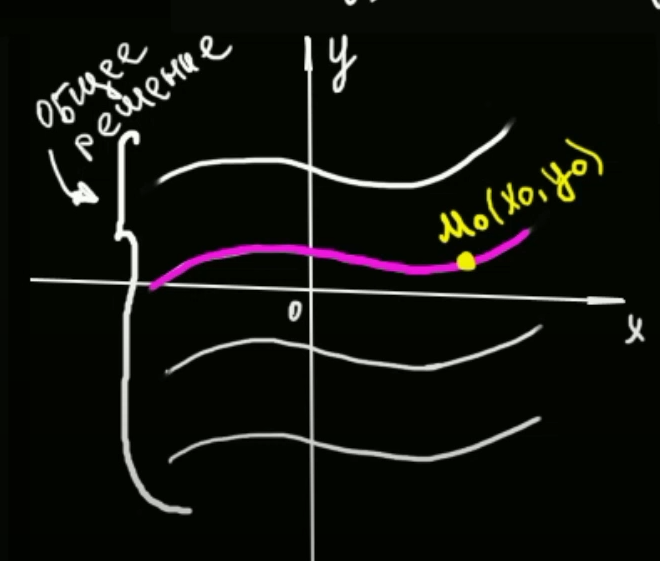 общее
решение
y
M₀(x₀, y₀)
0
x